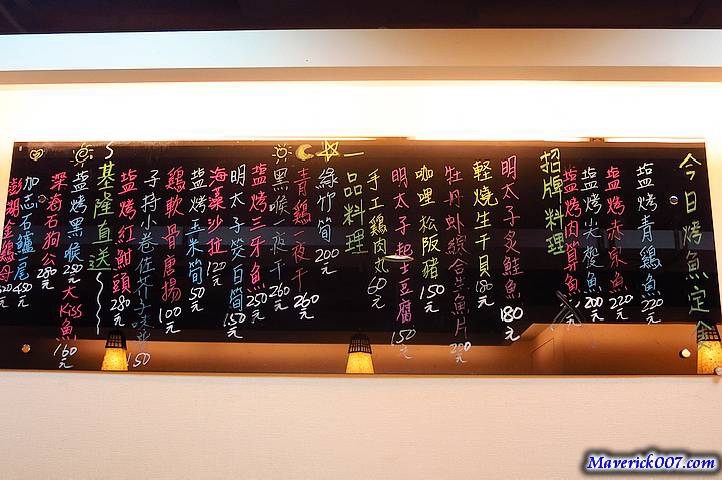 今日烤魚定食
塩烤青鷄魚 220元
塩烤
魚 220元
塩烤
魚 200元
塩烤肉算魚
元
招牌料理
明太子炙鮭魚 180元
輕燒生干貝 180元
牡丹蝦綜合生魚片 200元
咖哩松阪豬 150元
明太子起士豆腐 150元
手工鷄肉丸 60元
一品料理
綠竹筍 200元
青鷄一夜干 260元
黑喉一夜干 260元
塩烤三牙魚 250元
明太子茭白筍 150元
海菜沙拉 120元
塩烤玉米筍 50元
鷄軟骨唐揚 100元
子持小卷佐芥子味噌 150
塩烤紅魽頭 280元
基隆直送
塩烤黑喉 250元
大Kiss魚 160元
深海石狗公 280元
加志石鱸一尾 450元
澎湖金鷄母
Maverick007.com